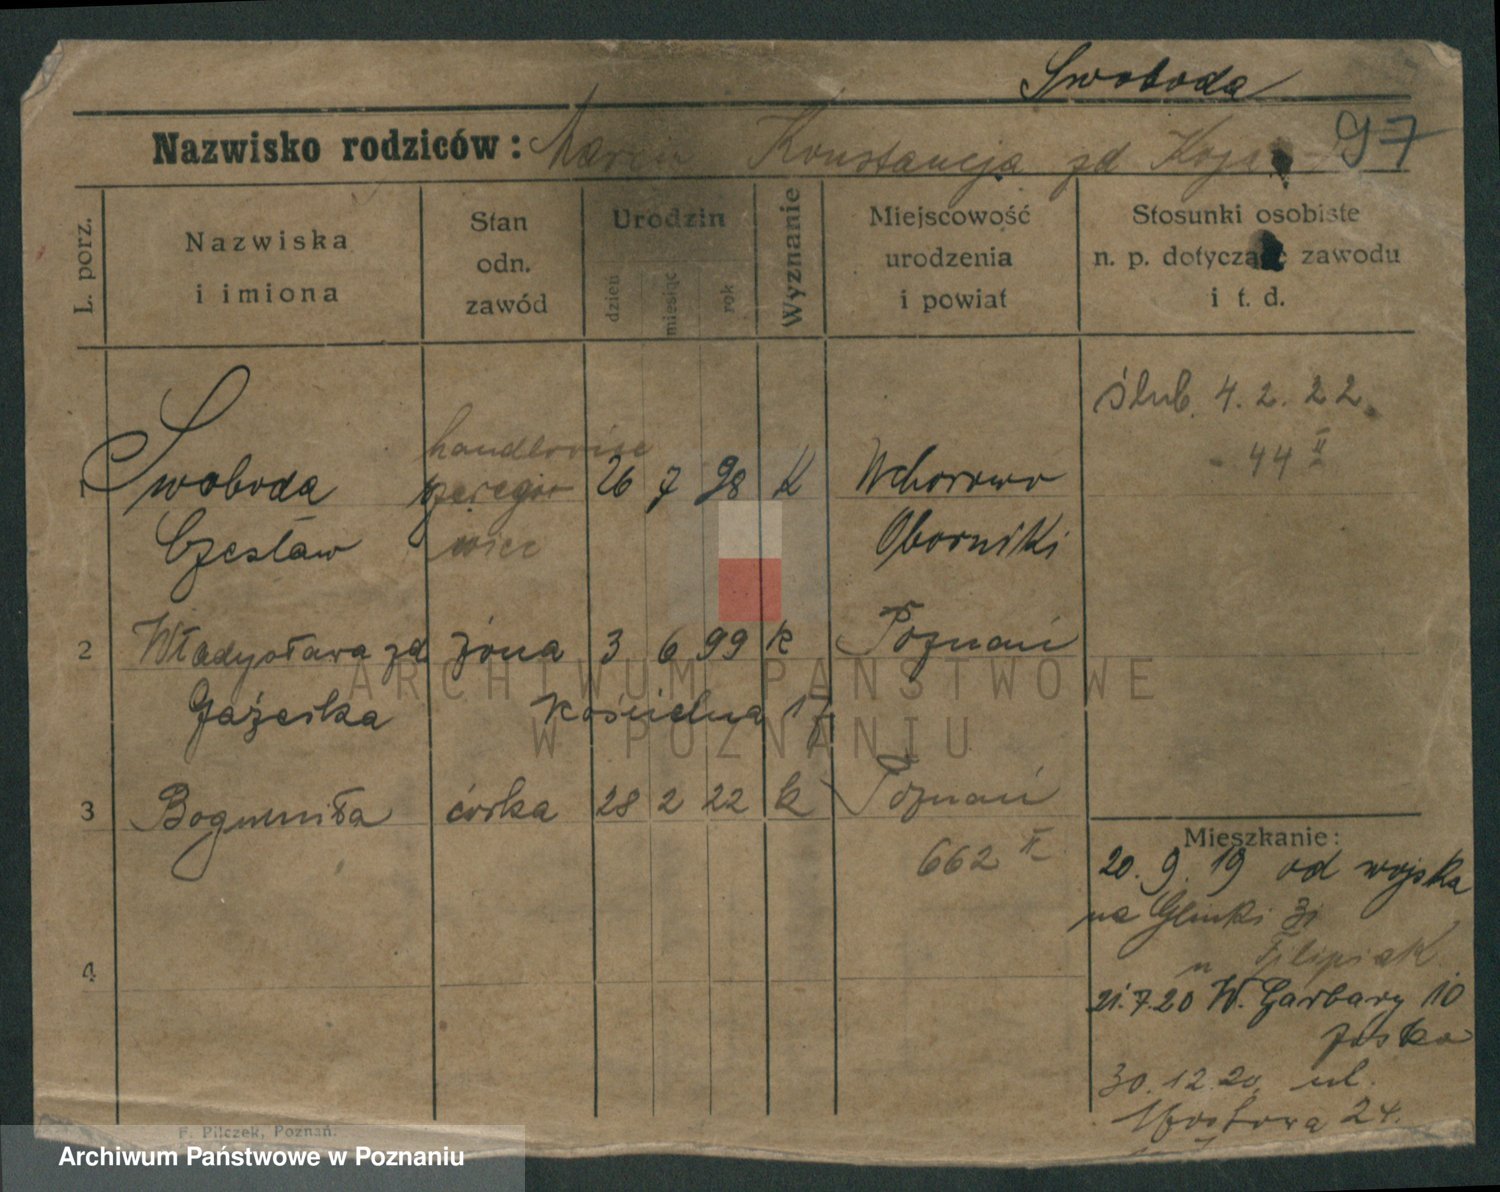 Swoboda
97
Nazwisko rodziców: Marcin Konstancja zd
L. porz.
Nazwiska i imiona
Stan odn. zawód
Urodzin
dzień
miesiąc
rok
Wyznanie
Miejscowość urodzenia i powiat
Stosunki osobiste n. p. dotyczące zawodu i t. d.
ślub. 4. 2. 22.
- 44 II
1 Swoboda 26 7 98 K
Czesław Oborniki
2 Władysława zd żona 3 6 99 k Poznań
Kościelna 17
3 Bogumiła córka 28 2 22 k Poznań
662 II
4
Mieszkanie:
20. 9. 19 od wojska
na Glinki 31
u Filipiak
21.7.20 W. Garbary 10
30.12.20. ul.
Mostowa 24.
F. Pilczek, Poznań.
ARCHIWUM PAŃSTWOWE
W POZNANIU
Archiwum Państwowe w Poznaniu